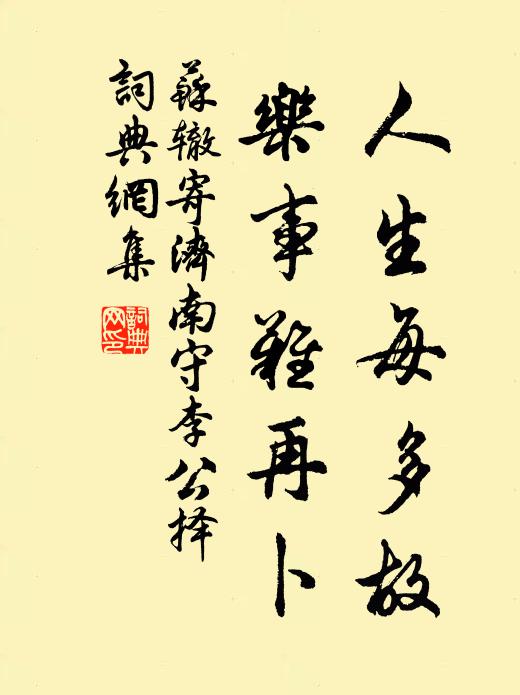 人生每多故
樂事難再卜
蘇辙寄濟南守李公择
詞典網集
詞典网印